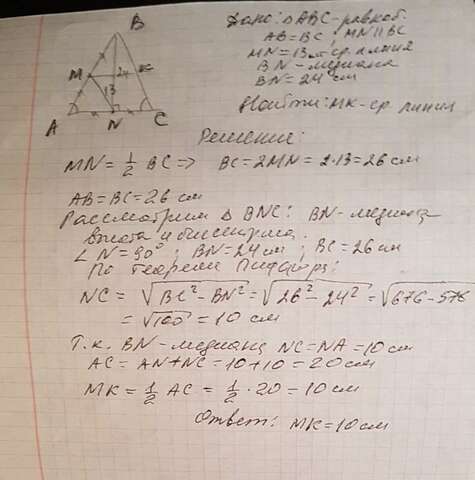 B
M
24
K
13
A
N
C
Дано: △ABC - равноб.
AB = BC ; MN || BC
MN = 13 см ср. линия
BN - медиана
BN = 24 см
Найти: MK - ср. линия
Решение:
MN = 1/2 BC => BC = 2MN = 2·13 = 26 см
AB = BC = 26 см
Рассмотрим △ BNC: BN - медиана
высота и биссектриса.
∠ N = 90° ; BN = 24 см ; BC = 26 см
По теореме Пифагора:
NC = √BC² - BN² = √26² - 24² = √676 - 576
= √100 = 10 см
Т.к. BN - медиана NC = NA = 10 см
AC = AN + NC = 10 + 10 = 20 см
MK = 1/2 AC = 1/2 · 20 = 10 см
Ответ: MK = 10 см